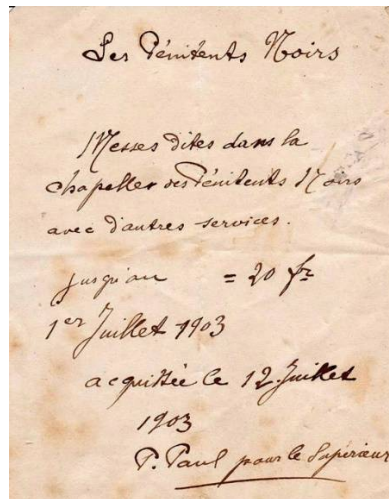 Les Pénitents Noirs
Messes dites dans la
chapelle des Pénitents Noirs
avec d'autres services.
jusqu'au = 20 fr
1er Juillet 1903
acquittée le 12 Juillet
1903
P. Paul pour le Supérieur